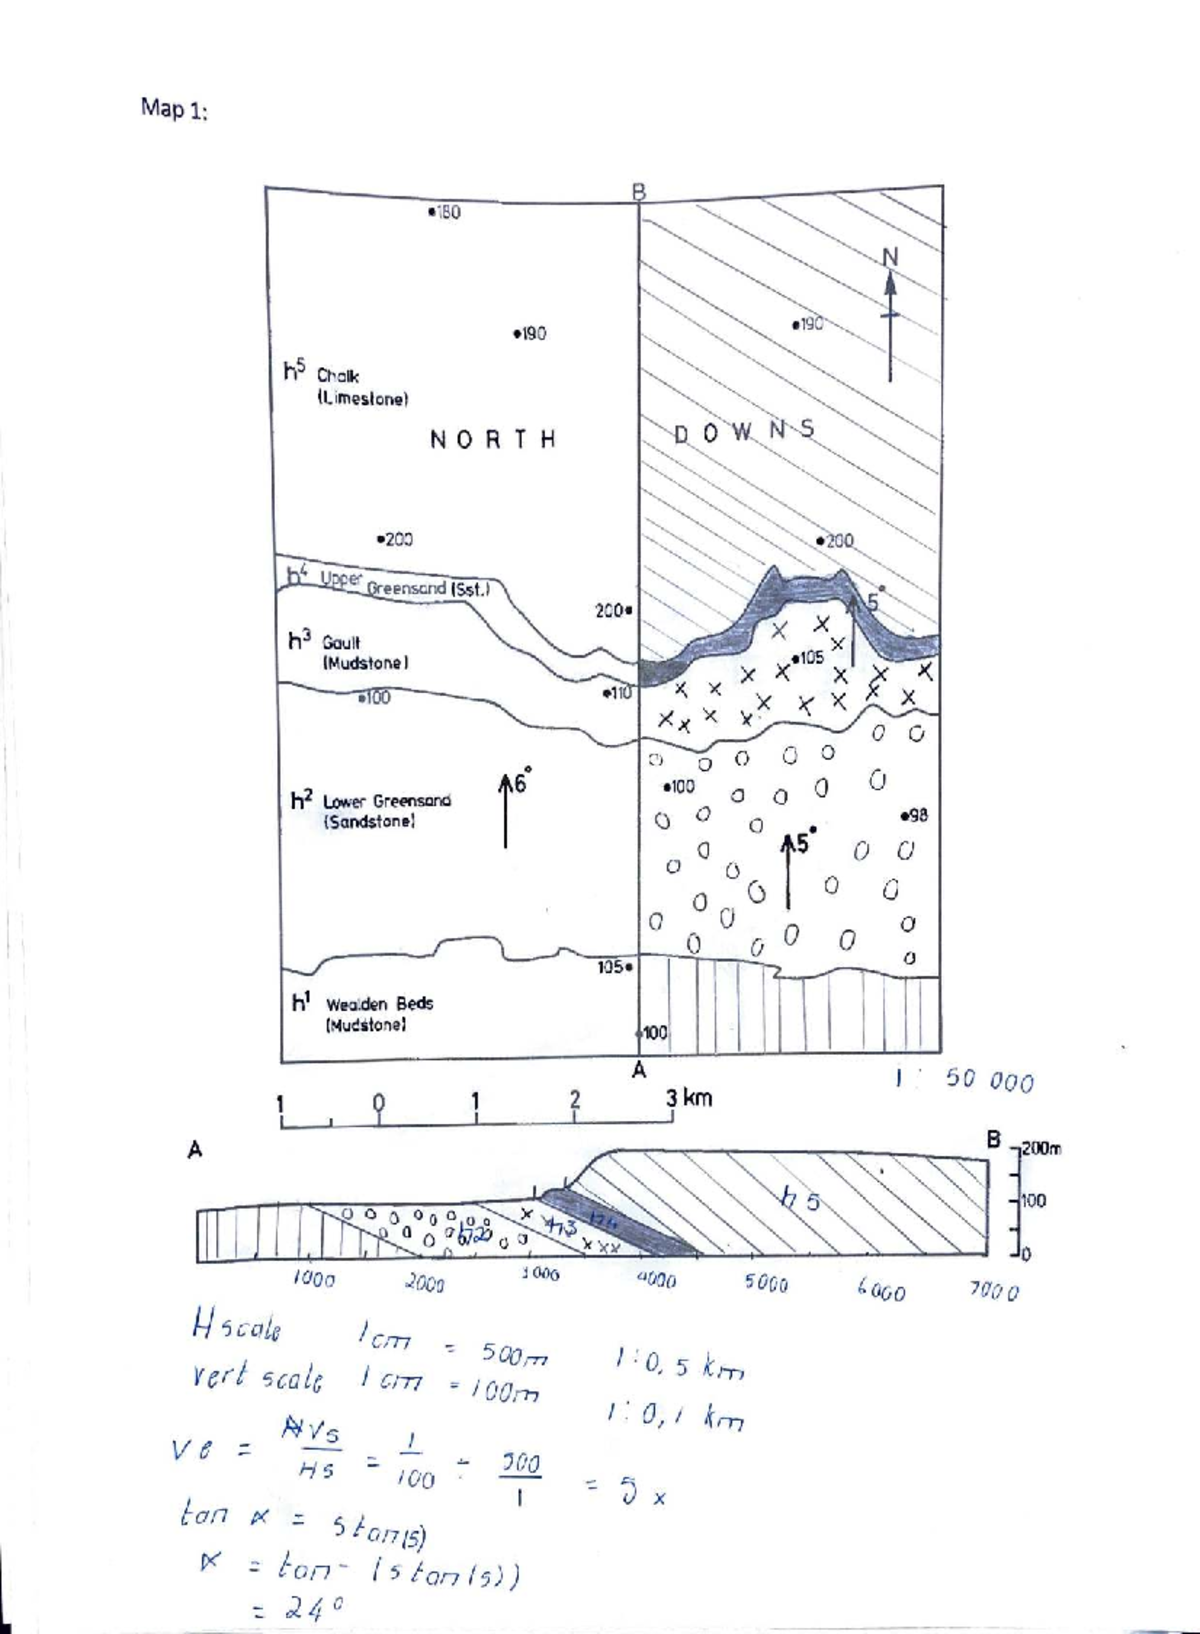 Map 1:
B
•180
N
•190
•190
h⁵ Chalk
(Limestone)
NORTH DOWNS
•200
•200
h⁴ Upper Greensand (Sst.)
5°
200•
h³ Gault
(Mudstone)
•105
•100
•110
6°
•100
h² Lower Greensand
(Sandstone)
•98
5°
105•
h¹ Wealden Beds
(Mudstone)
•100
A
1 : 50 000
1 0 1 2 3 km
A
B
200m
100
0
h2 h3 h4 h5
1000 2000 3000 4000 5000 6000 7000
H scale 1cm = 500m 1:0,5 km
vert scale 1cm = 100m 1:0,1 km
ve = VS/HS = 1/100 ÷ 500/1 = 5 x
tan α = 5tan(5)
α = tan⁻ (5tan(5))
= 24°